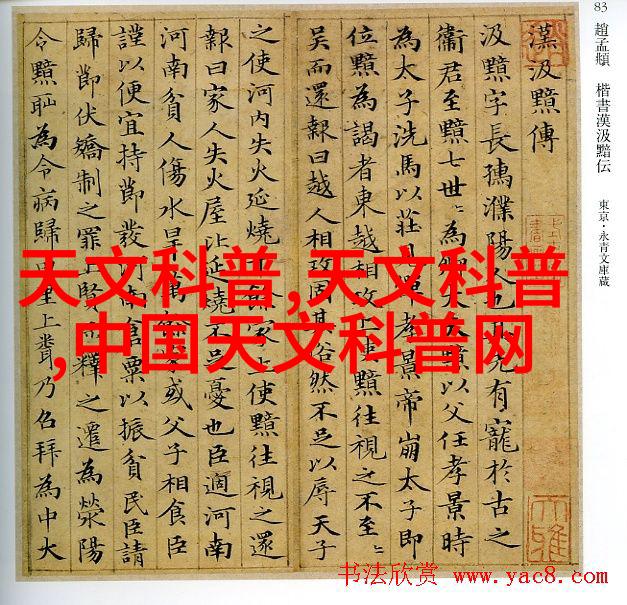 83
趙孟頫 楷書漢汲黯伝
東京・永青文庫蔵
漢汲黯傳
汲黯字長孺濮陽人也其先有寵於古之
衛君至黯七世〻為卿大夫黯以父任孝景時
為太子洗馬以莊見憚孝景帝崩太子即
位黯為謁者東越相攻上使黯往視之不至〻
吳而還報曰越人相攻固其俗然不足以辱天子
之使河內失火延燒千餘家上使黯往視之還
報曰家人失火屋比延燒不足憂也臣適河南
河南貧人傷水旱萬餘家或父子相食臣
謹以便宜持節發河南倉粟以振貧民臣請
歸節伏矯制之罪上賢而釋之遷為滎陽
令黯恥為令病歸田里上聞乃召拜為中大
天文科普,天文科普
,中国天文科普网
书法欣赏 www.yac8.com